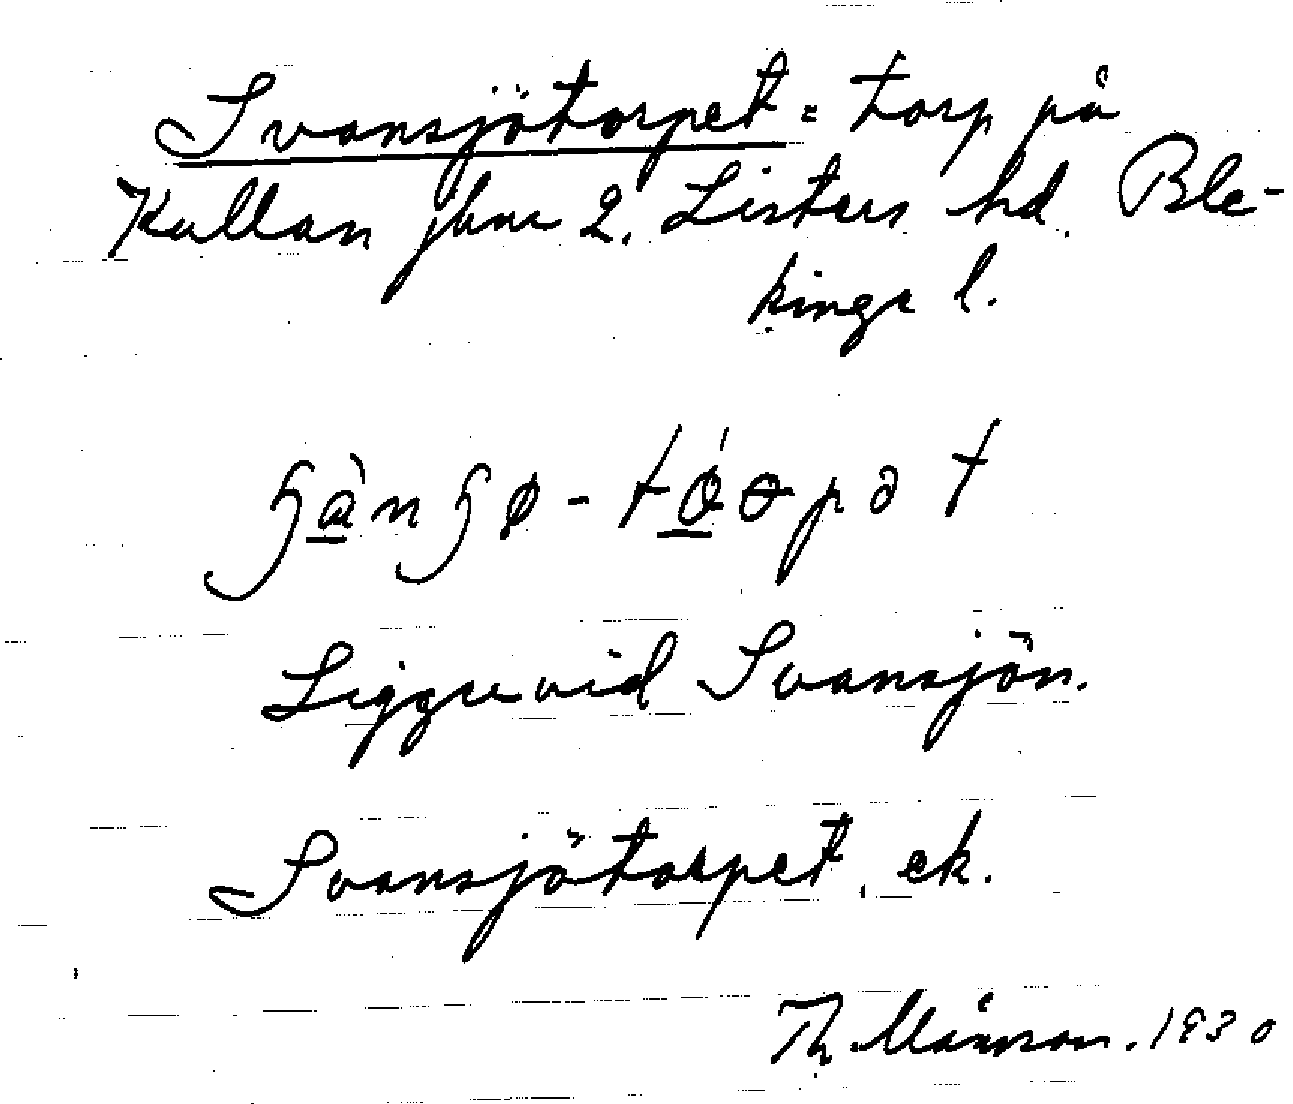 Svansjötorpet = torp på
Kullan jbnr 2. Listers hd. Ble-
kinge l.
Ligger vid Svansjön.
Svansjötorpet, ek.
Th. Månsson. 1930